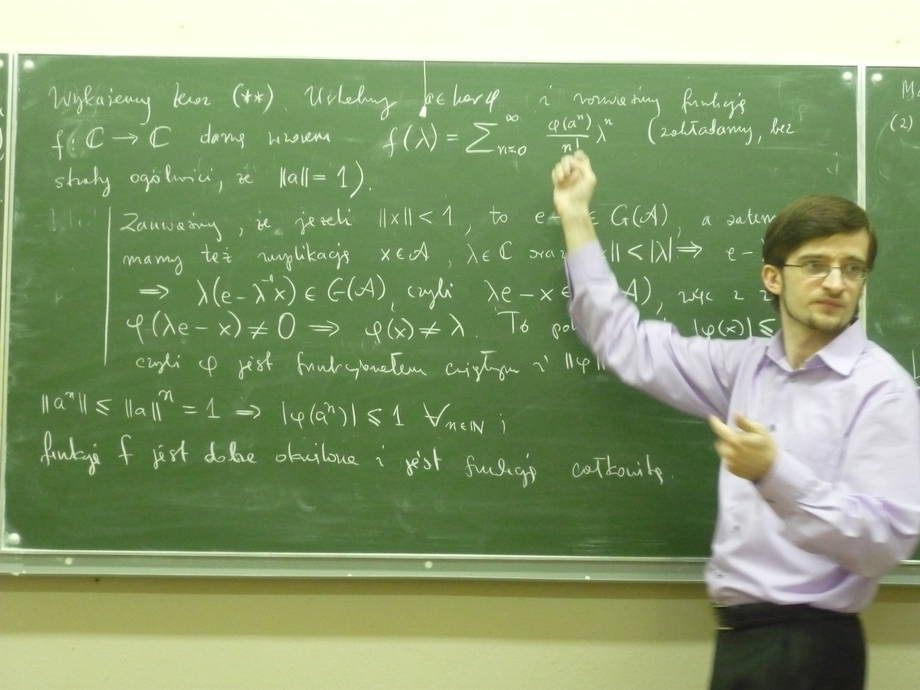 Wykażemy teraz (**). Ustalmy a ∈ ker φ i rozważmy funkcję
f: ℂ → ℂ daną wzorem f(λ) = ∑_{n=0}^{∞} φ(aⁿ)/n! λⁿ (zakładamy, bez
straty ogólności, że ‖a‖ = 1).
Zauważmy, że jeżeli ‖x‖ < 1, to e- ∈ G(A), a zatem
mamy też implikację x ∈ A, λ ∈ ℂ oraz ‖ < |λ| ⇒ e -
⇒ λ(e - λ⁻¹x) ∈ G(A), czyli λe - x ∈ A), więc z
φ(λe - x) ≠ 0 ⇒ φ(x) ≠ λ. To |φ(x)| ≤
czyli φ jest funkcjonałem ciągłym i ‖φ‖
‖aⁿ‖ ≤ ‖a‖ⁿ = 1 ⇒ |φ(aⁿ)| ≤ 1 ∀_{n∈ℕ} ;
funkcja f jest dobrze określona i jest funkcją całkowitą.
(2)